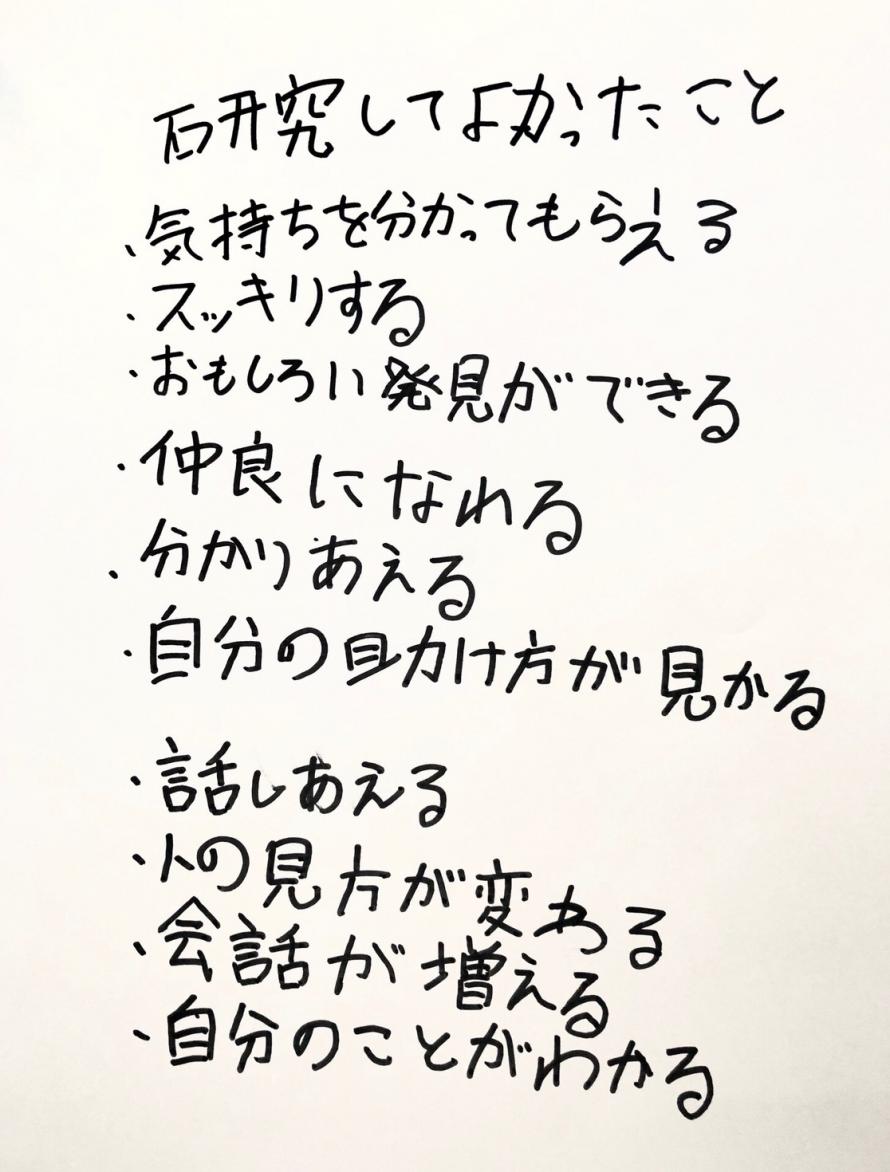 研究してよかったこと
・気持ちを分かってもらえる
・スッキリする
・おもしろい発見ができる
・仲良になれる
・分かりあえる
・自分の助け方が見かる
・話しあえる
・人の見方が変わる
・会話が増える
・自分のことがわかる